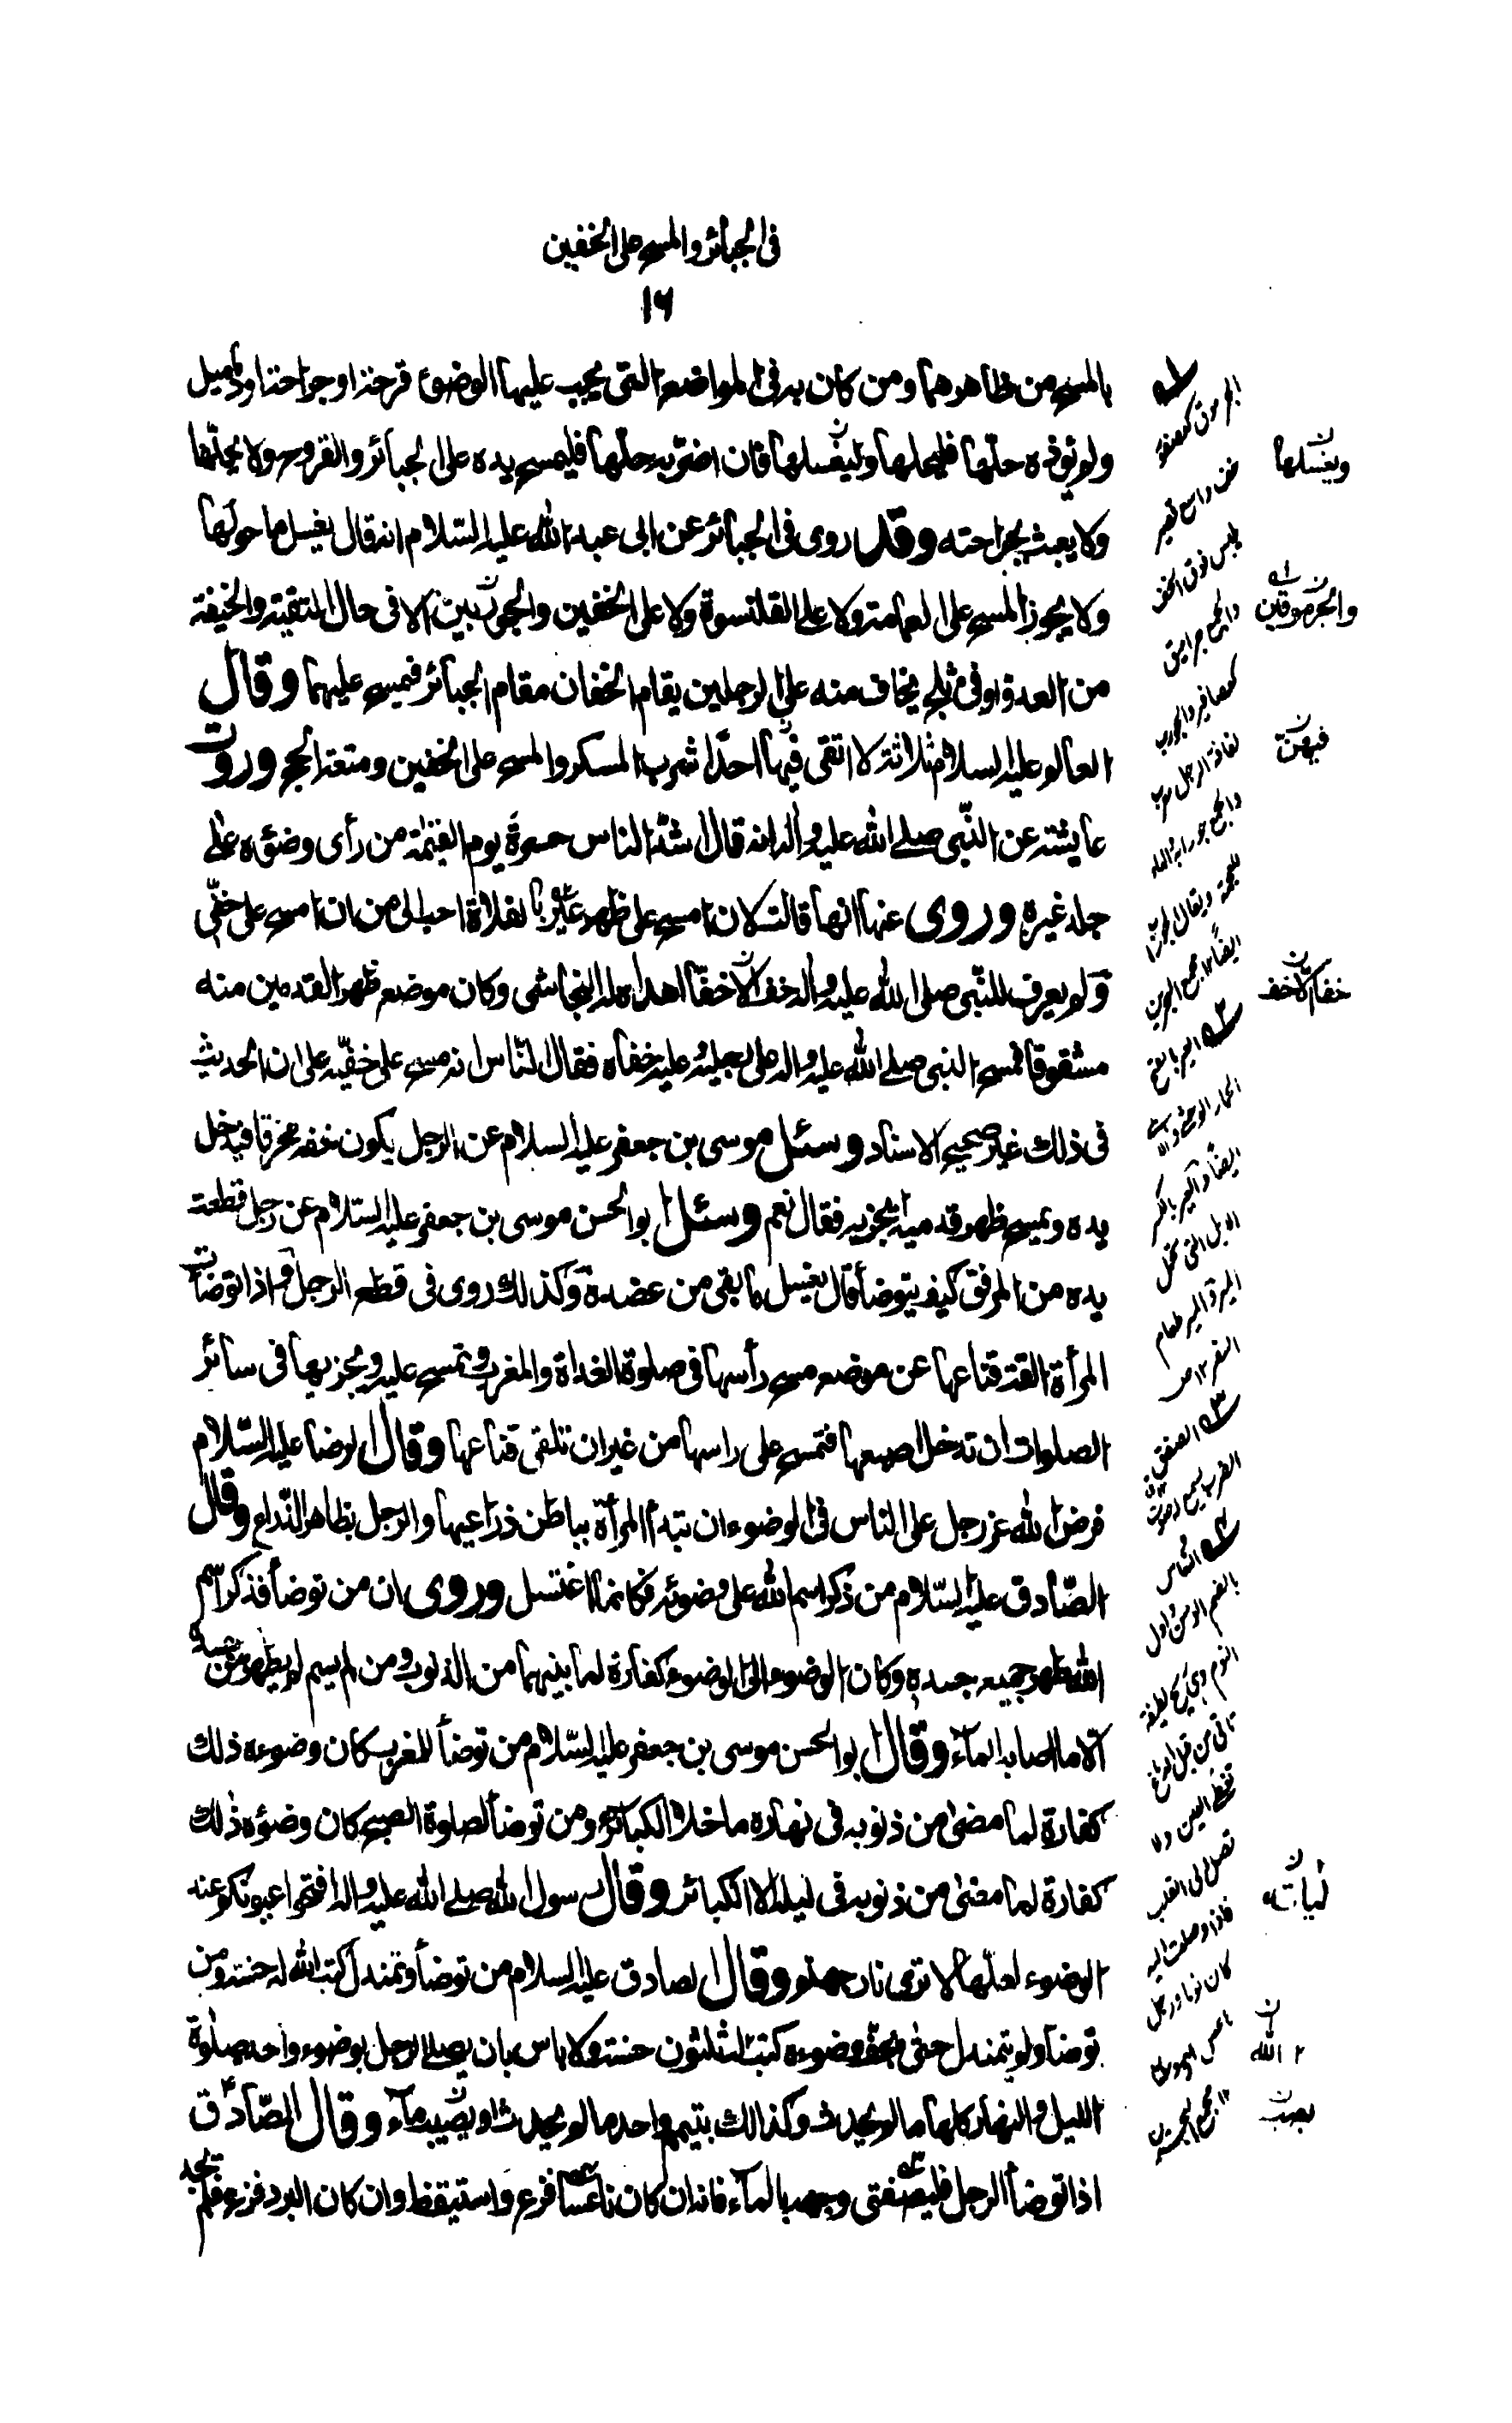 فی الجبائر والمسح علی الخفین
١٦
بالمسح من ظاهرهما ومن کان به فی المواضع التی یجب علیها الوضوء قرحة او جراحة او دمامیل
ولم یؤذه حلها فلیحلها ولیغسلها فان اضر به حلها فلیمسح یده علی الجبائر والقروح ولا یحلها
ولا یعبث بجراحته وقد روی فی الجبائر عن ابی عبد الله علیه السلام انه قال یغسل ما حولها
ولا یجوز المسح علی العمامة ولا علی القلنسوة ولا علی الخفین والجوربین الا فی حال التقیة والخیفة
من العدو او فی ثلج یخاف منه علی الرجلین یقام الخفان مقام الجبائر فیمسح علیهما وقال
العالم علیه السلام ثلاثة لا اتقی فیها احدا شرب المسکر والمسح علی الخفین ومتعة الحج وروت
عایشة عن النبی صلی الله علیه واله انه قال اشد الناس حسرة یوم القیمة من رأی وضوئه علی
جلد غیره وروی عنها انها قالت لان امسح علی ظهر عیر بالفلاة احب الی من ان امسح علی خفی
ولم یعرف للنبی صلی الله علیه واله خف الا خفا اهداه له النجاشی وکان موضع ظهر القدمین منه
مشقوقا فمسح النبی صلی الله علیه واله علی رجلیه وعلیه خفاه فقال الناس انه مسح علی خفیه علی ان الحدیث
فی ذلك غیر صحیح الاسناد وسئل موسی بن جعفر علیه السلام عن الرجل یکون خفه مخرقا فیدخل
یده ویمسح ظهر قدمیه ایجزیه فقال نعم وسئل ابو الحسن موسی بن جعفر علیه السلام عن رجل قطعت
یده من المرفق کیف یتوضأ قال یغسل ما بقی من عضده وکذلك روی فی قطع الرجل واذا توضأت
المرأة القت قناعها عن موضع مسح رأسها فی صلوة الغداة والمغرب وتمسح علیه ویجزیها فی سائر
الصلوات ان تدخل اصبعها فتمسح علی راسها من غیر ان تلقی قناعها وقال الرضا علیه السلام
فرض الله عز وجل علی الناس فی الوضوء ان تبدأ المرأة بباطن ذراعیها والرجل بظاهر الذراع وقال
الصادق علیه السلام من ذکر اسم الله علی وضوئه فکانما اغتسل وروی ان من توضأ فذکر اسم
الله طهر جمیع جسده وکان الوضوء الی الوضوء کفارة لما بینهما من الذنوب ومن لم یسم لم یطهر من جسده
الا ما اصابه الماء وقال ابو الحسن موسی بن جعفر علیه السلام من توضأ للمغرب کان وضوءه ذلك
کفارة لما مضی من ذنوبه فی نهاره ما خلا الکبائر ومن توضأ لصلوة الصبح کان وضوؤه ذلك
کفارة لما مضی من ذنوبه فی لیله الا الکبائر وقال رسول الله صلی الله علیه واله افتحوا عیونکم عند
الوضوء لعلها لا تری نار جهنم وقال الصادق علیه السلام من توضأ وتمندل کتب الله له حسنة ومن
توضأ ولم یتمندل حتی یجف وضوءه کتب له ثلثون حسنة ولا باس بان یصلی الرجل بوضوء واحد صلوة
اللیل والنهار کلها ما لم یحدث وکذلك بتیمم واحد ما لم یحدث او یصیب ماء وقال الصادق
اذا توضأ الرجل فلیصفق وجهه بالماء فانه ان کان ناعسا فزع واستیقظ وان کان البرد فزع فلم یجد
ویغسلها
والجرموقین
فیهن
خف الا خف
لیلته
الله
یصب
الجرموق کعصفور
خف واسع قصیر
یلبس فوق الخف
والجمع جرامیق
کعصافیر والجورب
لفافة الرجل معرب